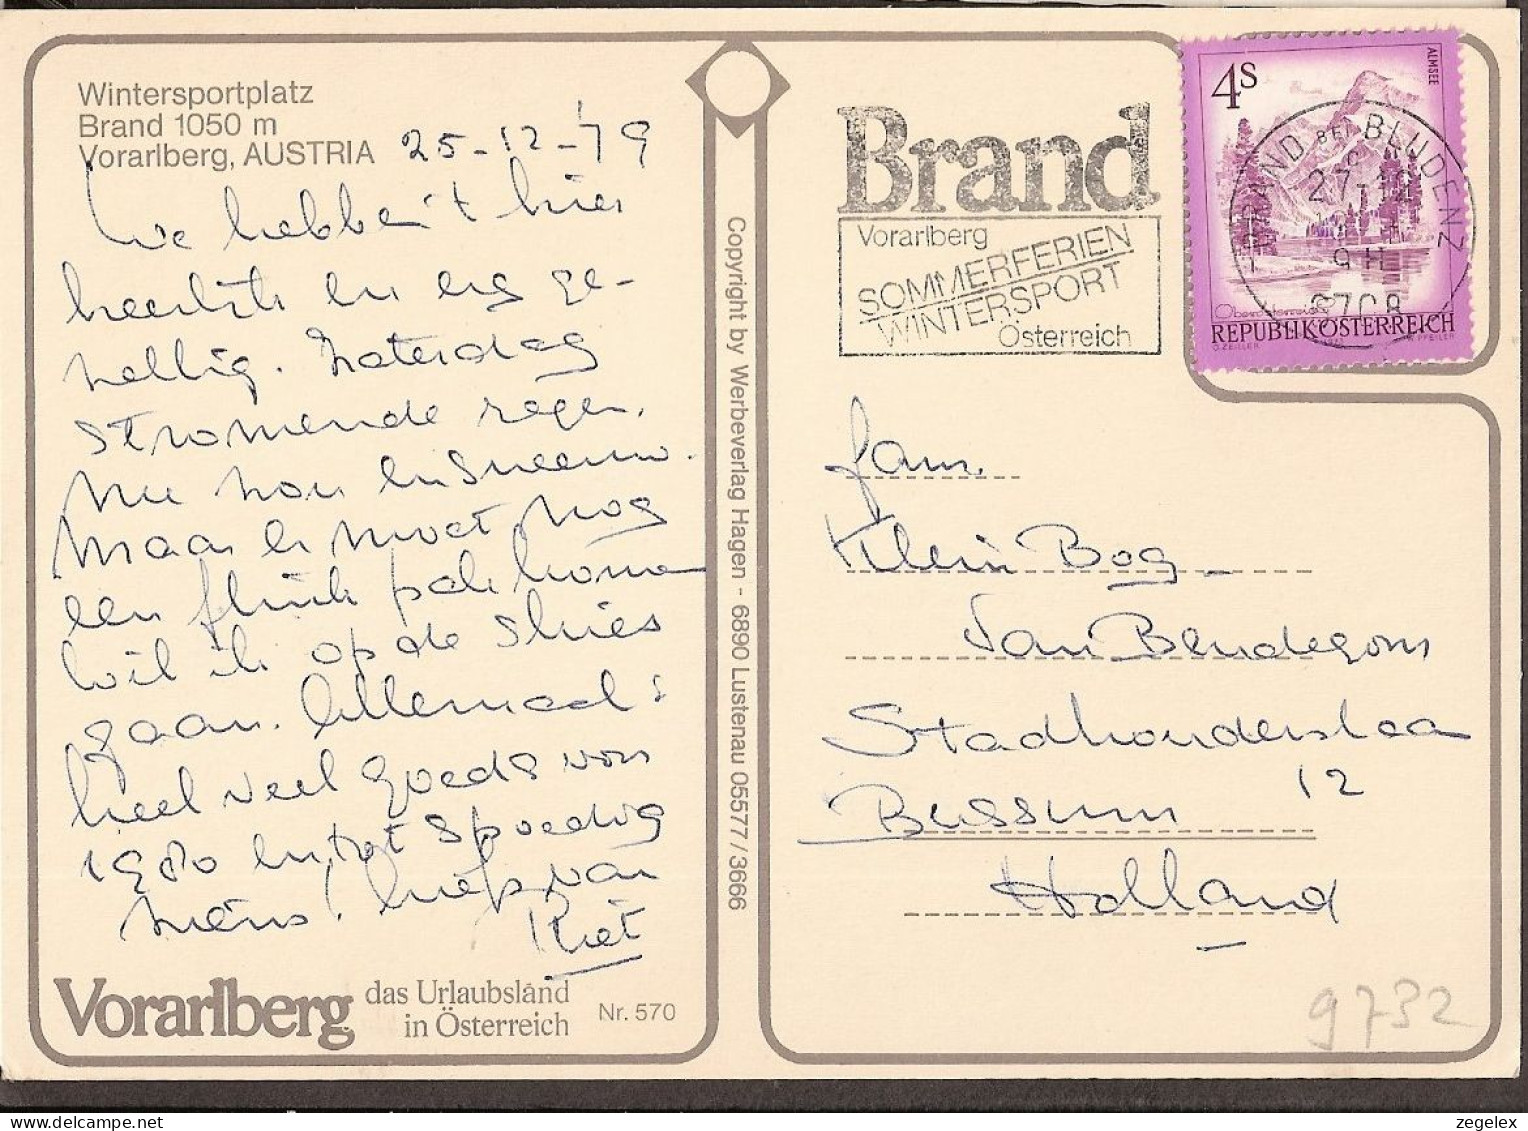 Wintersportplatz
Brand 1050 m
Vorarlberg, AUSTRIA
25-12-'79
We hebben 't hier
heerlijk en erg ge-
zellig. Zaterdag
stromende regen,
nu non en sneeuw.
Maar er moet nog
een flink pak komen
wil ik op de skies
gaan. Allemaal:
heel veel goeds voor
1980 en tot spoedig
liefs van
Riet
Vorarlberg das Urlaubsland
in Österreich
Nr. 570
Copyright by Werbeverlag Hagen - 6890 Lustenau 05577/3666
Brand
Vorarlberg
SOMMERFERIEN
WINTERSPORT
Österreich
4S
ALMSEE
BRAND BEI BLUDENZ
27.12
9H
6708
REPUBLIK ÖSTERREICH
Fam.
Klein Bog-
Van Beudegom
Stadhouderslaan
12
Bussum
Holland
9732
zegelex